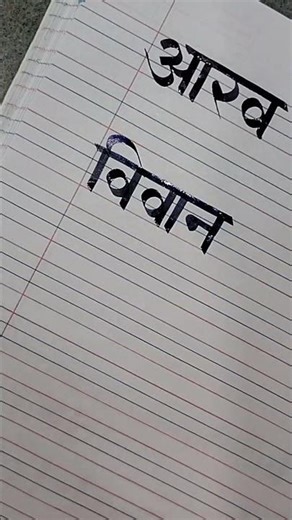 आरव
विवान